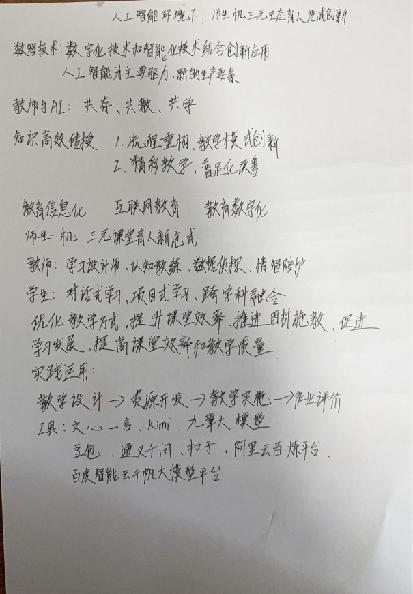 人工智能环境下，师生机三元生态育人范式创新
数智技术：数字化技术和智能化技术结合创新应用
人工智能为主要驱力，新的生产要素
教师与AI：共存、共教、共学
知识高效传授 1.流程重构，教学模式创新
2.精移教学，普及化优秀
教育信息化 互联网教育 教育数字化
师生机三元课堂育人新范式
教师：学习设计师、认知教练、数据侦探、情智陪护
学生：对话式学习，项目式学习，跨学科融合
优化教学方式，提升课堂效率，推进因材施教，促进
学习发展，提高课堂效率和教学质量
实践运用：
教学设计→资源开发→教学实施→作业评价
工具：文心一言、Kimi、九章大模型
豆包、通义千问、扣子，阿里云百炼平台
百度智能云千帆大模型平台